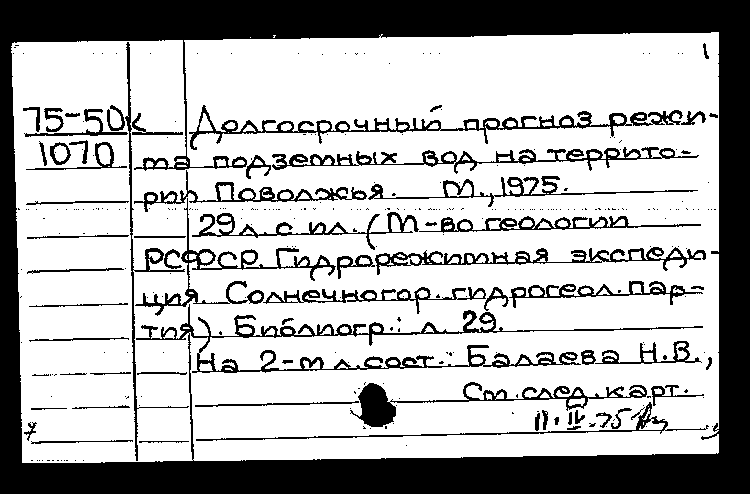 1
75-50к Долгосрочный прогноз режи-
1070 ма подземных вод на террито-
рии Поволжья. М., 1975.
29 л. с ил. (М-во геологии
РСФСР. Гидрорежимная экспеди-
ция. Солнечногор. гидрогеол. пар-
тия). Библиогр.: л. 29.
На 2-м л. сост.: Балаева Н.В.,
См. след. карт.
11.IV.75
7